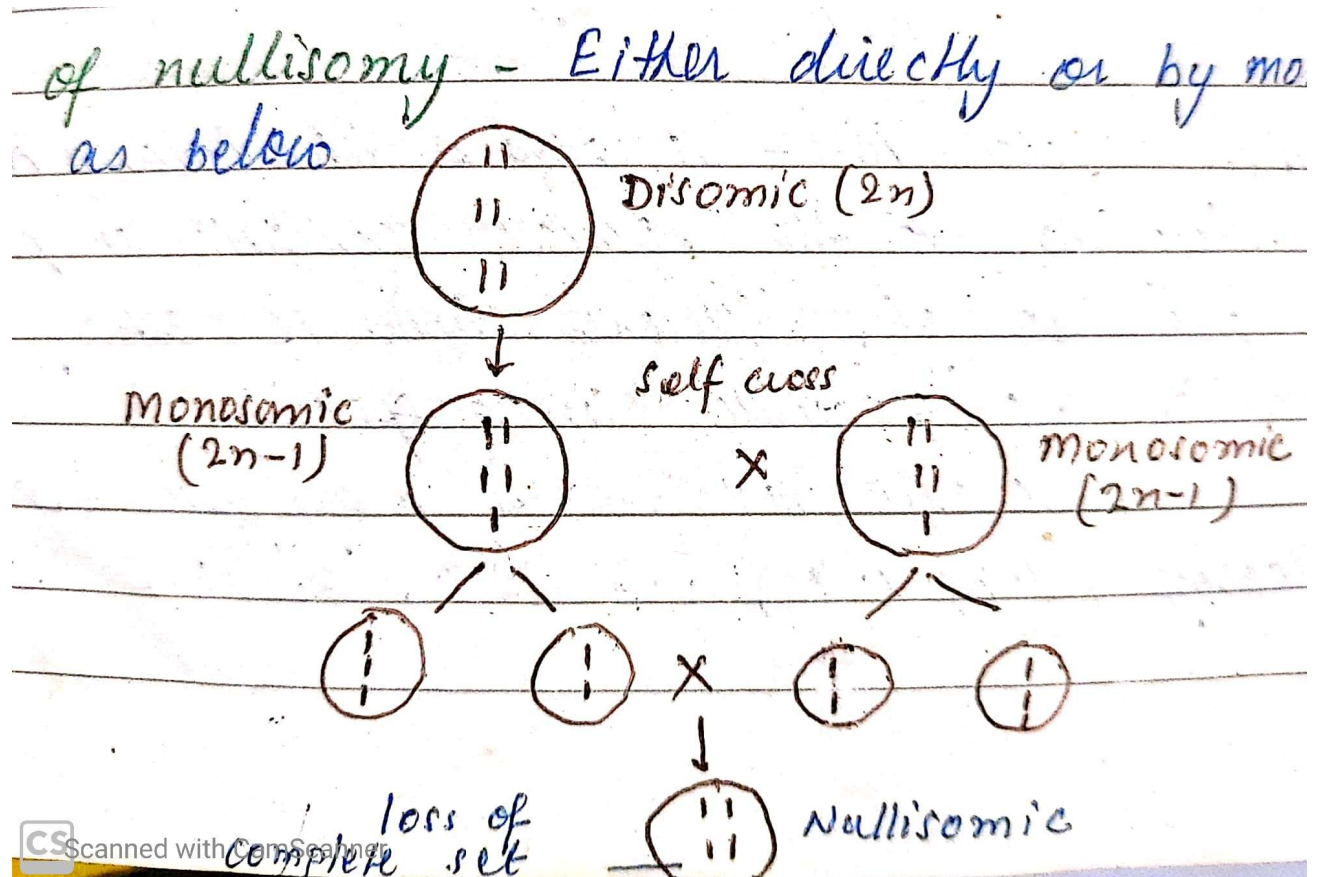 of nullisomy - Either directly or by mo
as below
Disomic (2n)
self cross
Monosomic
(2n-1)
X
monosomic
(2n-1)
X
loss of
complete set
Nullisomic
CS Scanned with CamScanner